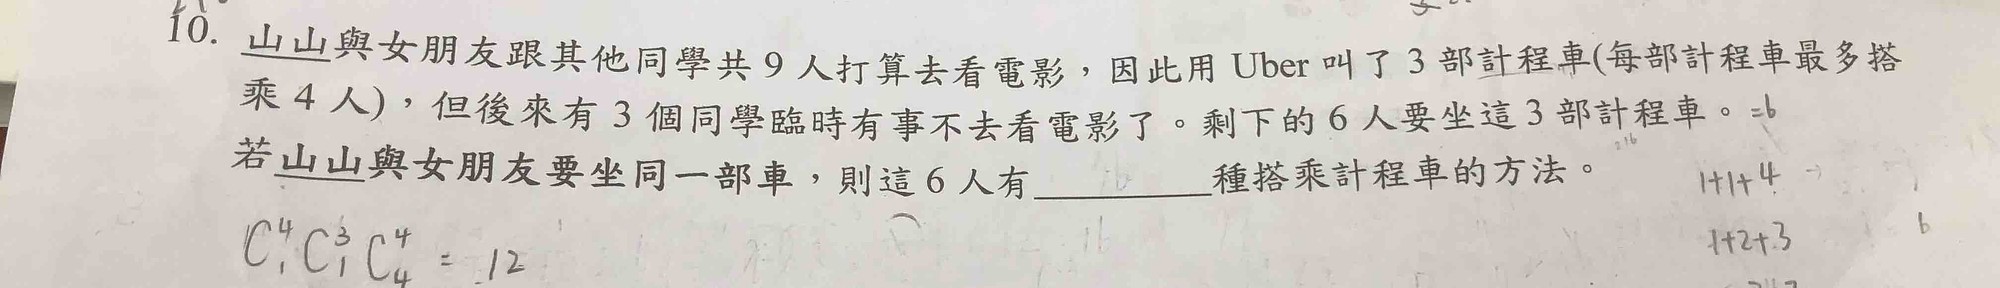 10. 山山與女朋友跟其他同學共 9 人打算去看電影，因此用 Uber 叫了 3 部計程車(每部計程車最多搭
乘 4 人)，但後來有 3 個同學臨時有事不去看電影了。剩下的 6 人要坐這 3 部計程車。=6
若山山與女朋友要坐同一部車，則這 6 人有________種搭乘計程車的方法。
1+1+4
1+2+3
6
C⁴₁C³₁C⁴₄ = 12